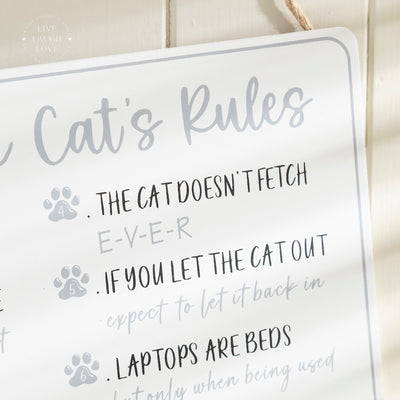 LIVE
LAUGH
LOVE
Cat's Rules
4. THE CAT DOESN'T FETCH
E-V-E-R
5. IF YOU LET THE CAT OUT
expect to let it back in
6. LAPTOPS ARE BEDS
but only when being used